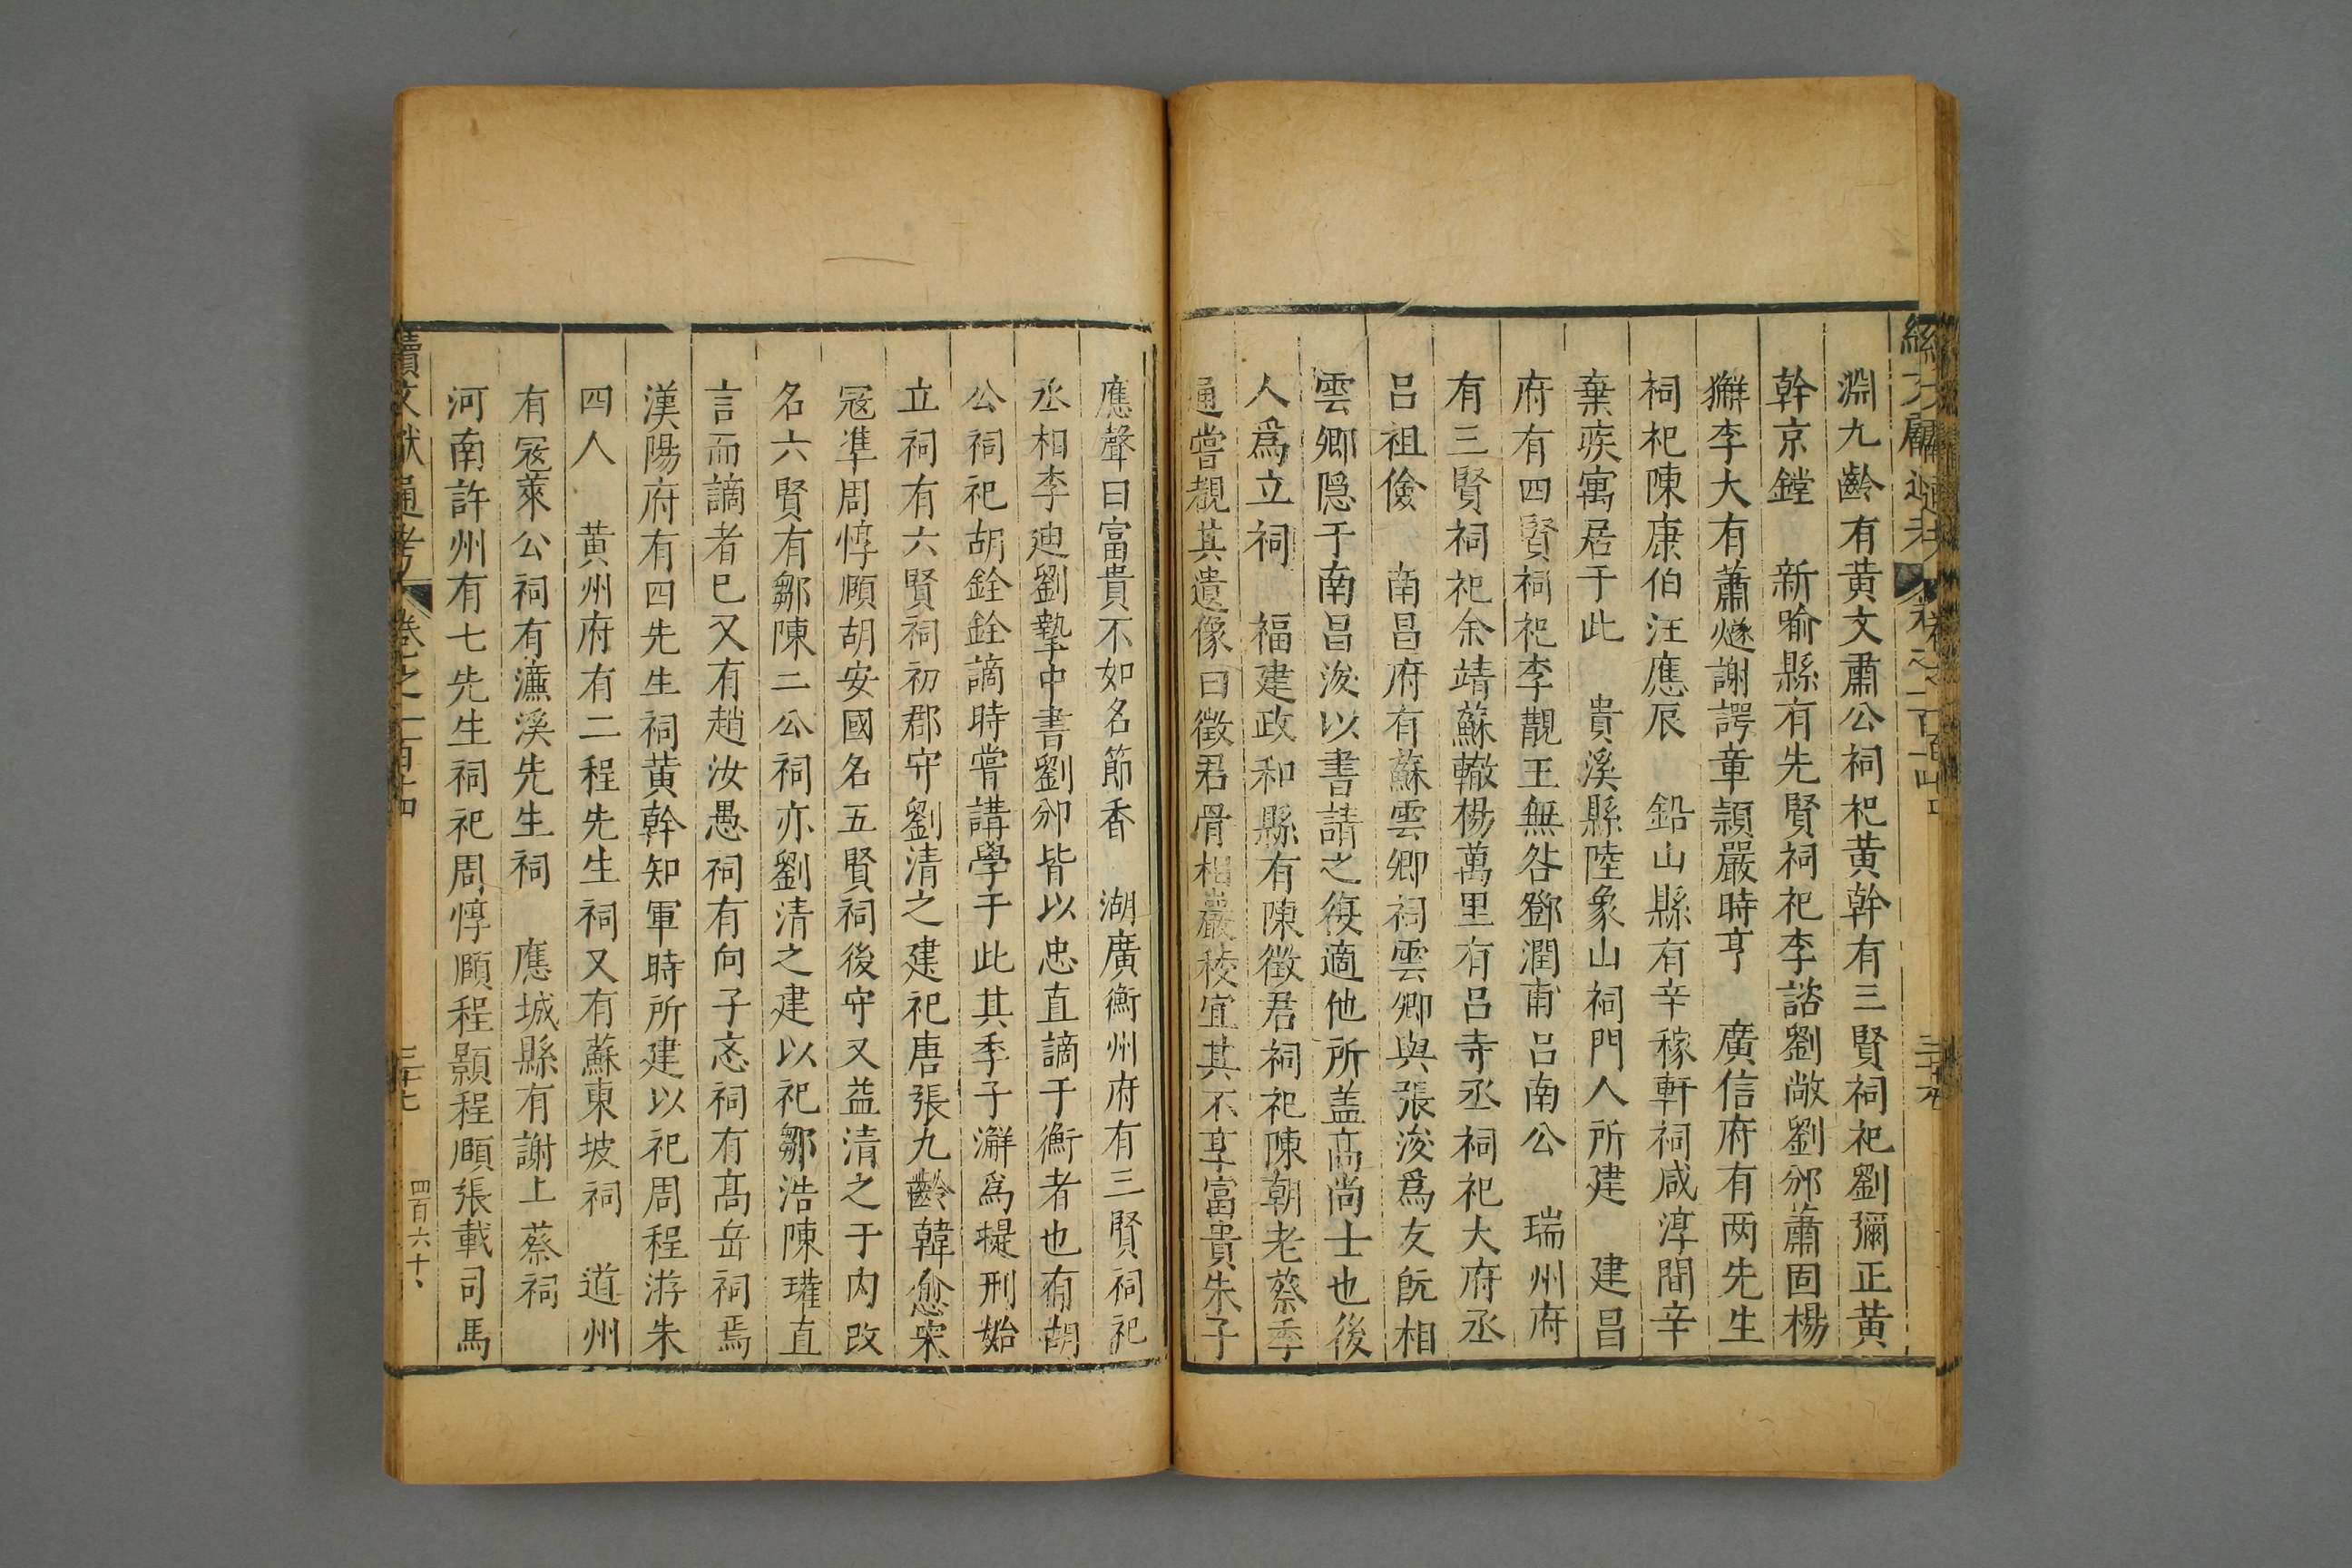 淵九齡有黃文肅公祠祀黃幹有三賢祠祀劉彌正黃
幹京鏜　新喻縣有先賢祠祀李諮劉敞劉邠蕭固楊
獬李大有蕭燧謝諤章頴嚴時亨　廣信府有两先生
祠祀陳康伯汪應辰　鉛山縣有辛稼軒祠咸淳間辛
棄疾寓居于此　貴溪縣陸象山祠門人所建　建昌
府有四賢祠祀李覯王無咎鄧潤甫呂南公　瑞州府
有三賢祠祀余靖蘇轍楊萬里有呂寺丞祠祀大府丞
呂祖儉　南昌府有蘇雲卿祠雲卿與張浚爲友旣相
雲卿隠于南昌浚以書請之復適他所盖高尚士也後
人爲立祠　福建政和縣有陳徵君祠祀陳朝老蔡季
通嘗觀其遺像曰徵君骨相巖稜宜其不享富貴朱子
應聲曰富貴不如名節香　湖廣衡州府有三賢祠祀
丞相李廸劉摯中書劉邠皆以忠直謫于衡者也有胡
公祠祀胡銓銓謫時嘗講學于此其季子澥爲提刑始
立祠有六賢祠初郡守劉清之建祀唐張九齡韓愈宋
冦準周惇頤胡安國名五賢祠後守又益清之于内改
名六賢有鄒陳二公祠亦劉清之建以祀鄒浩陳瓘直
言而謫者巳又有趙汝愚祠有向子忞祠有高岳祠焉
漢陽府有四先生祠黃幹知軍時所建以祀周程游朱
四人　黃州府有二程先生祠又有蘇東坡祠　道州
有冦萊公祠有濂溪先生祠　應城縣有謝上蔡祠
河南許州有七先生祠祀周惇頤程顥程頤張載司馬
續文獻通考　卷之一百十四　三十七　四百六十